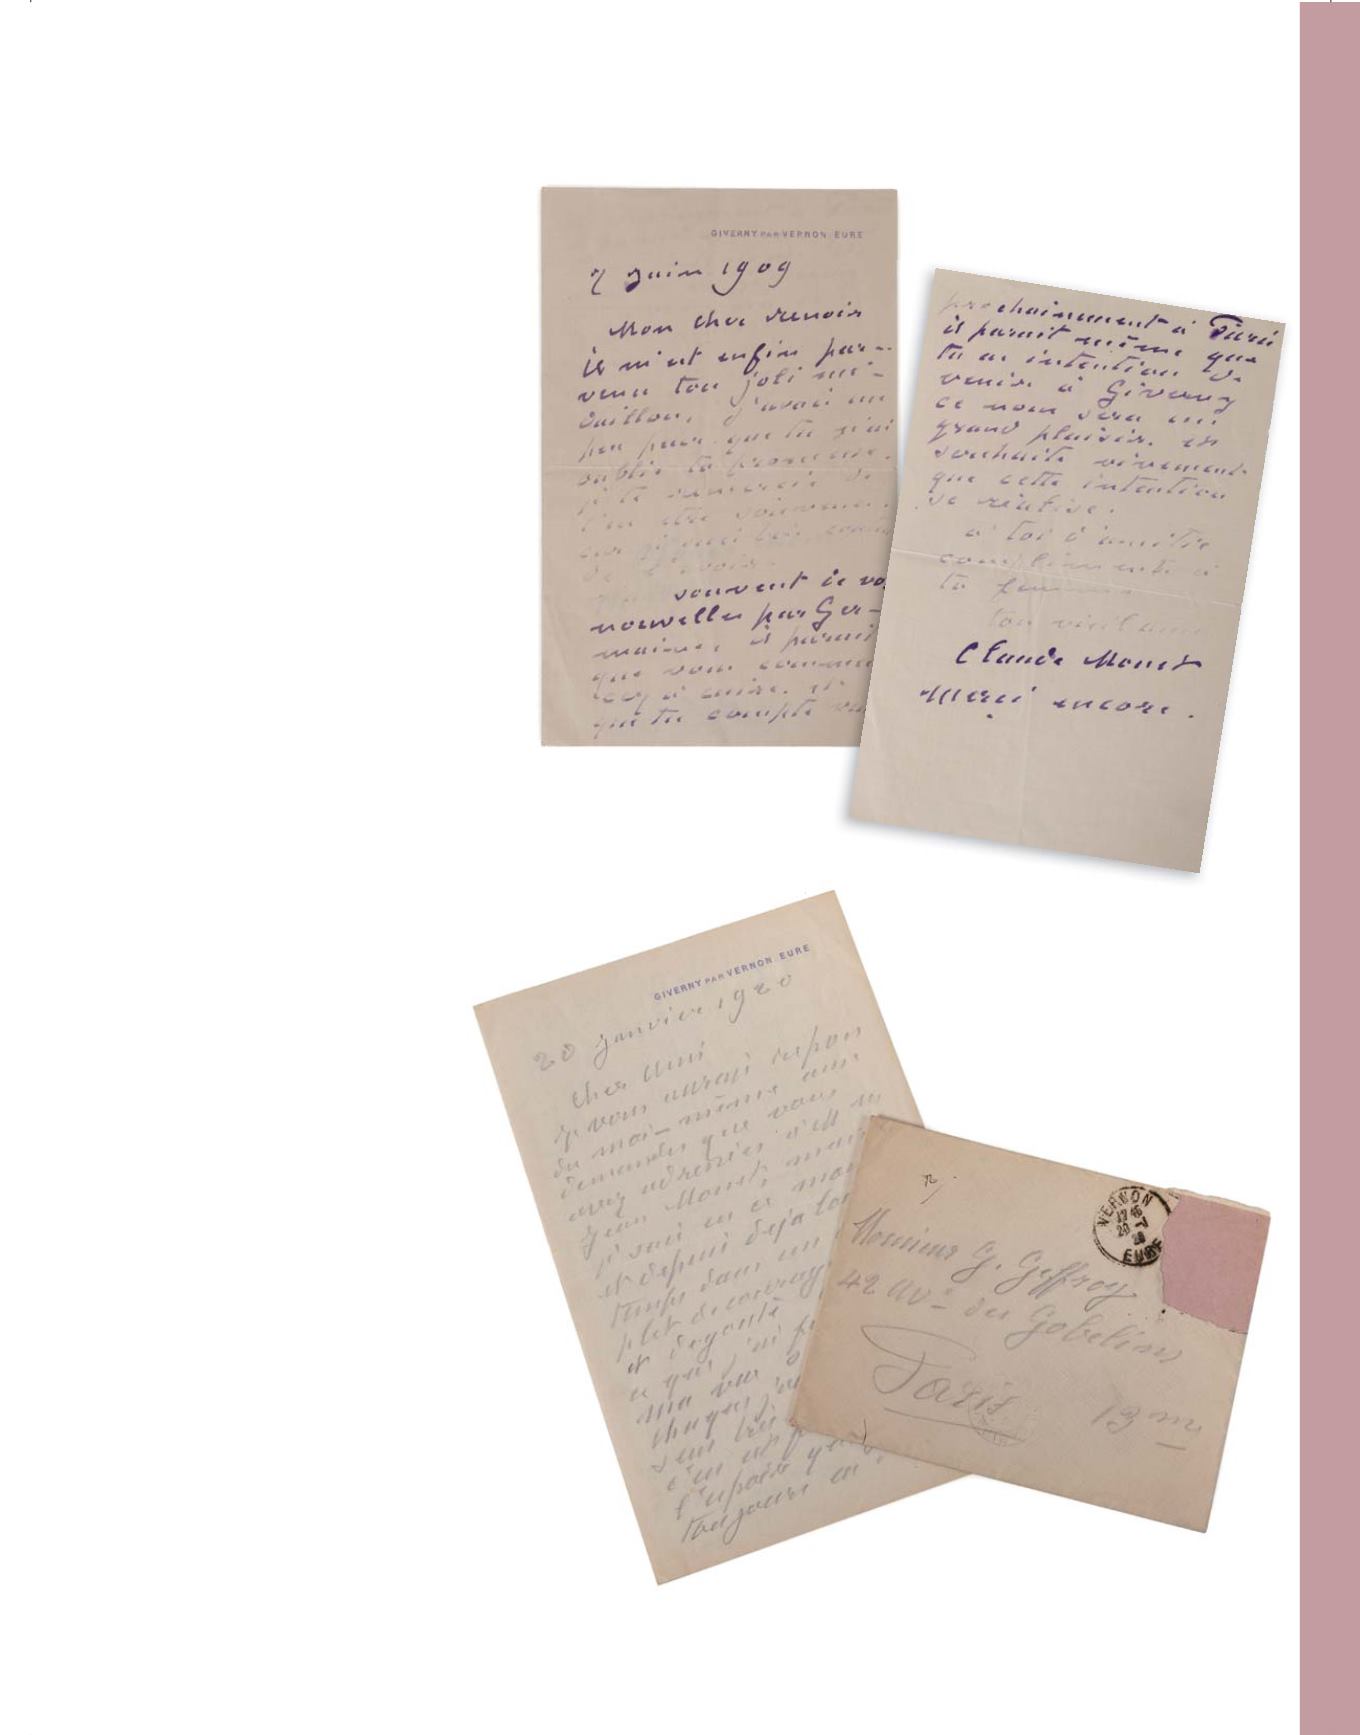 GIVERNY PAR VERNON EURE
7 juin 1909
Mon cher Renoir
il m'est enfin par-
venu ton joli mé-
daillon, j'avais un
peu peur que tu n'ai
oublié ta promesse.
je te remercie de
t'en être souvenu.
souvent je vo
nouvelles par Ger-
maine, il parait
que vous
que tu compte
prochainement à Paris
il parait même que
tu as intention de
venir à Giverny
ce nous sera un
grand plaisir. et
souhaite vivement
que cette intention
se réalise.
à toi d'amitié
compliments à
ta femme
ton vieil ami
Claude Monet
Merci encore.
GIVERNY PAR VERNON EURE
20 janvier 1920
Cher Ami
je vous aurais répon
du moi-même aux
demandes que vous
avez adressées
Jean Monet, mais
je suis en ce mo
et depuis déjà lon
temps dans un
plet découragement
et dégouté
ce que j'ai
ma vue
chaque
toujours
VERNON
20
EURE
Monsieur G. Geffroy
42 av. des Gobelins
Paris
13 me